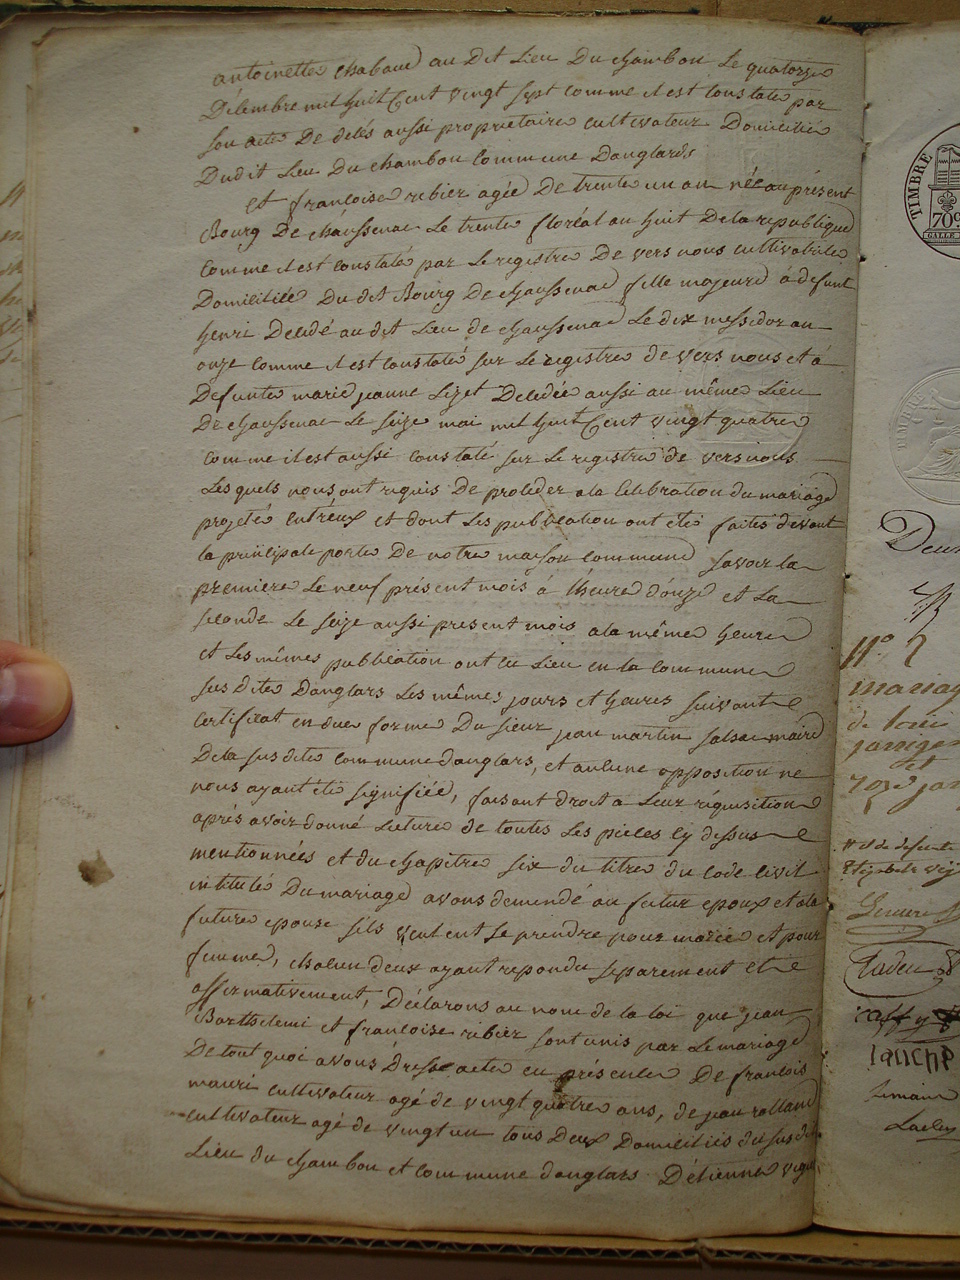 antoinette chabaud au dit Lieu Du chambon Le quatorze
Décembre mil huit Cent vingt sept comme il est constaté par
son acte De décés aussi propriétaire cultivateur Domicilié
Dudit Lieu Du chambon Commune D'anglards
et françoise ribier agée De trente un an née au présent
Bourg De chaussenac Le trente floréal an huit De la republique
comme il est constaté par Le registre De vers nous cultivatrice
Domiciliée Du dit Bourg De chaussenac fille majeure à defunt
henri Décédé au dit Lieu de chaussenac Le dix messidor an
onze comme il est constaté sur Le registre de vers nous et à
Defunte marie jeanne Lizet Décédée aussi au même Lieu
De chaussenac Le seize mai mil huit Cent vingt quatre
comme il est aussi constaté sur Le registre de vers nous
Les quels nous ont requis De procéder a la Celebration du mariage
projeté entr'eux et dont Les publication ont été faites devant
la principale porte De notre maison commune savoir la
premiere Le neuf présent mois à l'heure d'onze et La
seconde Le seize aussi present mois a la même heure
et Les mêmes publication ont eu Lieu en la commune
sus dite D'anglars Les mêmes jours et heures suivant Le
Certificat en due forme Du sieur jean martin salsac maire
De la sus dite commune d'anglars, et aucune opposition ne
nous ayant été signifiée, faisant droit a Leur réquisition
aprés avoir donné Lecture de toutes Les pieces cy dessus
mentionnées et du chapitre six du titre du Code Civil
intitulé Du mariage avons demendé au futur epoux et a la
future epouse s'ils veulent Se prendre pour mari et pour
femme, chacun d'eux ayant repondu séparement et
affirmativement, Déclarons au nom de la loi que jean
Barthelemi et françoise ribier sont unis par Le mariage
De tout quoi avons dressé acte en présence De francois
mauri cultivateur agé de vingt quatre ans, de jean rolland
cultivateur agé de vingt un tous Deux Domiciliés du sus dit
Lieu du chambon et commune d'anglars D'étienne
TIMBRE
70c
Deux
N° 7
mariag
de
et